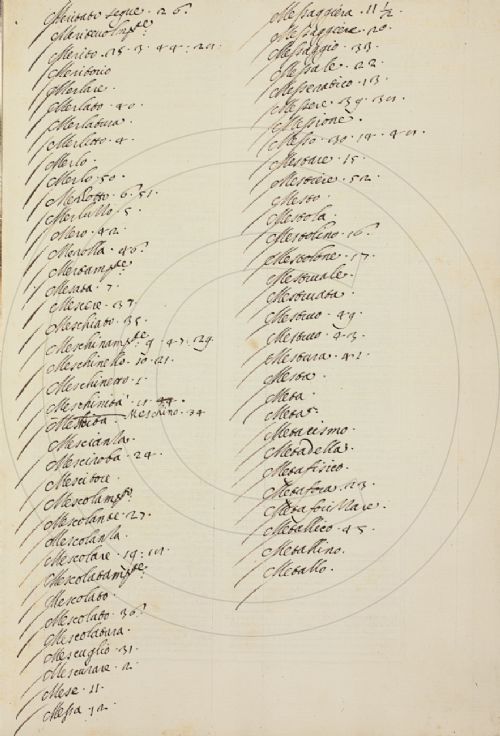 Meritato segue. 26.
Meritevolm.te
Merito. 15. 3. 44. 20.
Meritorio
Merlare.
Merlato. 40.
Merlatura.
Merletto. 4.
Merlo.
Merlo. 50.
Merlotto. 6. 51.
Merluzzo. 5.
Mero. 42.
Merolla. 46.
Mesata. 7.
Mescere. 37.
Meschiato. 35.
Meschinam.te 9. 47. 29.
Meschinello. 10. 21.
Meschinetto. 1.
Meschinità. 11. 44.
Meschino. 34
Mescianla.
Mesciroba. 24.
Mescitore.
Mescolam.to
Mescolante. 27.
Mescolanza.
Mescolare. 19. 11.
Mescolatam.te
Mescolato.
Mescolato. 36.
Mescolatura.
Mescuglio. 31.
Mesurare. 2.
Mese. 11.
Messa 32.
Messaggiera. 11 1/2.
Messaggiere. 20.
Messaggio. 33.
Messale. 22.
Messeratico. 13.
Messere. 39. 30.
Messione.
Messo. 30. 14. 41.
Mestare. 15.
Mestiere. 52.
Mesto.
Mestola.
Mestolino. 16.
Mestolone. 17.
Mestruale.
Mestruata.
Mestruo. 49.
Mestruo. 43.
Mestura. 41.
Meta.
Meta.
Metacismo.
Metadella.
Metafisico.
Metafora. 23.
Metaforizzare.
Metallico. 45.
Metallino.
Metallo.